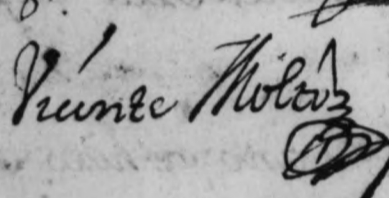 Vicente Moltó